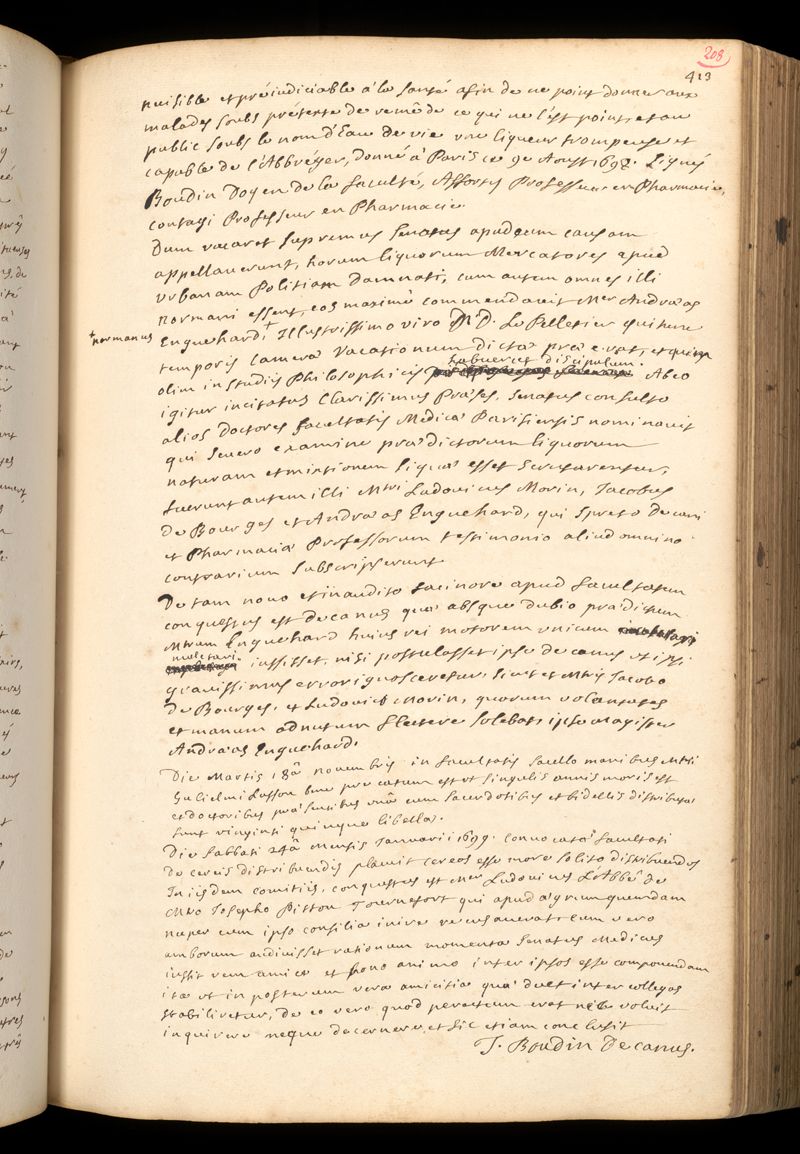 208
413
nuisible et préiudiciable à la santé afin de ne point donner aux
malades soubs prétexte de remède ce qui ne l'est point, et au
public soubs le nom d'Eau de vie une liqueur trompeuse et
capable de l'Abbréger, donné à Paris ce 9e Aoust 1698. Signés
Boudin Doyen de la faculté, Afforty Professeur en Pharmacie,
contugi Professeur en Pharmacie
Dum vacaret supremus senatus apud eum causam
appellaverunt, horum liquorum Mercatores apud
urbanam Politiam damnati, cum autem omnes illi
normani essent, eos maximè commendavit Mer Andraeas
+ normanus
Enguehard + Illustrissimo viro D. D. Le Pelletier qui tunc
temporis camerae vacationum dictae prae erat, et quem
olim in studiis Philosophicis habuerat discipulum. Ab eo
igitur incitatus clarissimus Praeses, senatus consulto
alios Doctores facultatis Medicae Parisiensis nominavit
qui severo examine praedictorum liquorum
naturam et mixtionem siqua esset scrutarentur,
fuerunt autem illi Mtri Ludovicus Morin, Jacobus
De Bourges et Andraeas Enguehard, qui spreto Decani
et Pharmaciae Professorum testimonio aliud omnino
contrarium subscripserunt
De tam novo et inaudito facinore apud facultatem
conquestus est decanus quae absque dubio praedictum
Mtrum Enguehard huius rei motorem unicum
mulctari iussisset, nisi postulasset ipse decanus ut ipsi
gravissimus error ignosceretur, sicut et Mtris Jacobo
De Bourges, et Ludovico Morin, quorum voluntates
et manum ad nutum flectere solebat ipse Magister
Andraeas Enguehard.
Die Martis 18â novembris in facultatis sacello manibus Mtri
Gulielmi Lasson bene precatum est ut singulis annis moris est
et doctoribus praesentibus unâ cum sacerdotibus et bidellis distributa
sunt viginti quinque libellae.
Die sabbati 24â mensis Januarii 1699. convocatâ facultati
de cereis distribuendis placuit cereos esse more solito distribuendos
In iisdem comitiis, conquestus est Mer Ludovicus L'Abbé de
Mtro Josepho Pitton Tournefort qui apud aegrum quendam
nuper cum ipso consilia inire recusaverat: cum vero
amborum audivisset rationum momenta senatus Medicus
iussit rem amice et bono animo inter ipsos esse componendam
ita ut in posterum vera amicitia quae decet inter collegas
stabiliretur, de eo vero quod peractum erat nihil voluit
inquirere neque decernere, et sic etiam conclusit
T. Boudin Decanus.